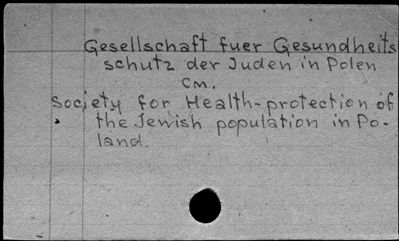 Gesellschaft fuer Gesundheits
schutz der Juden in Polen
cm.
Society for Health-protection of
the Jewish population in Po-
land.